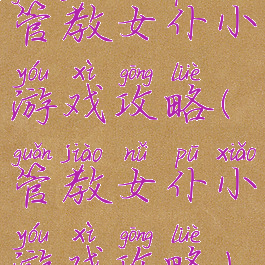 管教女仆小
yóu xì gōng lüè
游戏攻略(
guǎn jiào nǚ pū xiǎo
管教女仆小
yóu xì gōng lüè
游戏攻略)